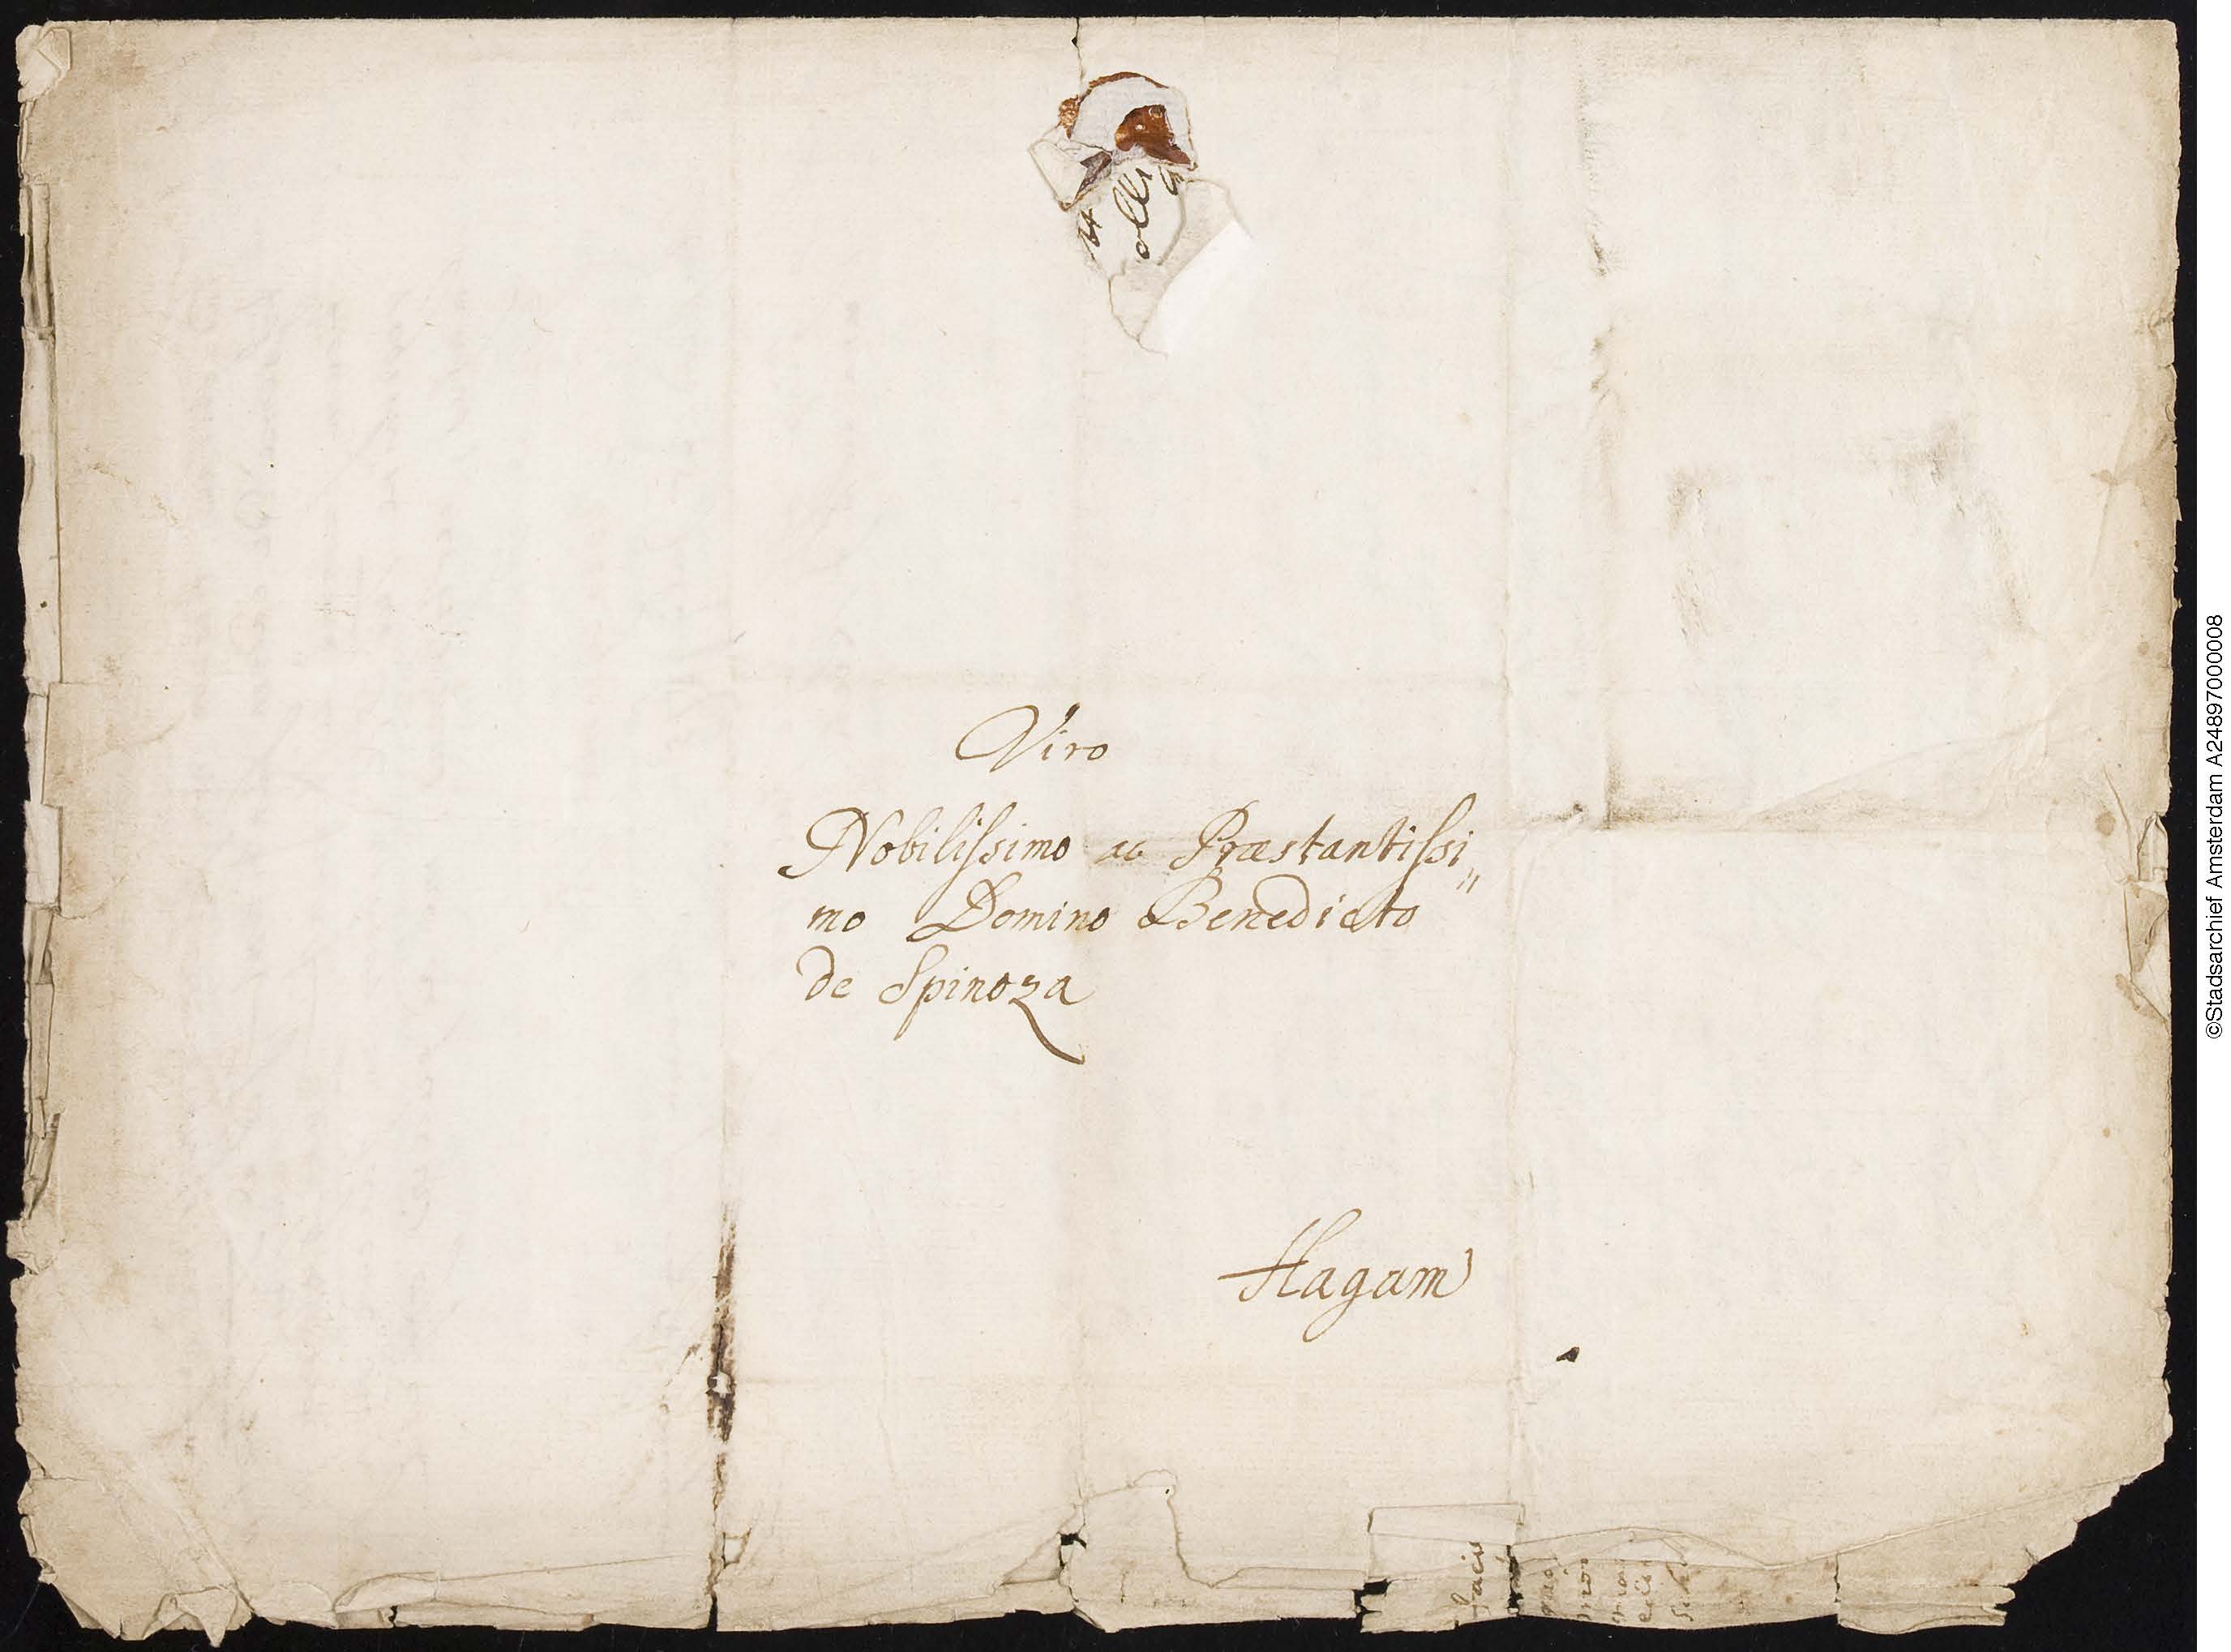 olli
Viro
Nobilissimo ac Præstantissi„
mo Domino Benedicto
de Spinoza
Hagam
faciu
©Stadsarchief Amsterdam A24897000008